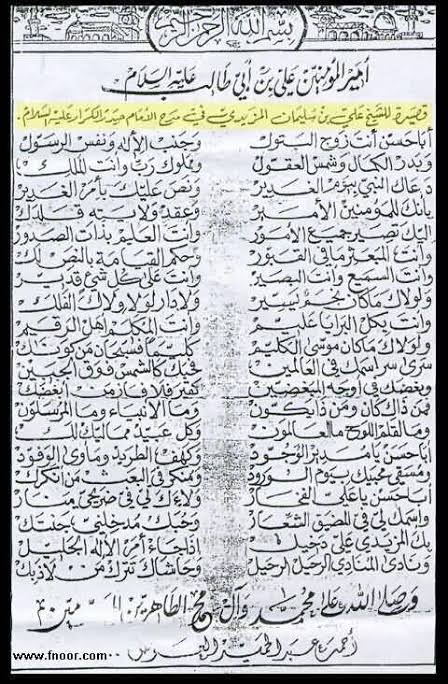 بسم الله الرحمن الرحيم
أمير المؤمنين علي بن أبي طالب عليه السلام
قصيدة للشيخ علي بن سليمان المزيدي في مدح الإمام حيدر الكرار عليه السلام.
أبا حسن أنت زوج البتول وجنب الإله ونفس الرسول
وبدر الكمال وشمس العقول ومملوك رب وأنت الملك
دعاك النبي بيوم الغدير ونص عليك بأمر الغدير
بأنك للمؤمنين الأمير وعقد ولايته قلدك
إليك تصير جميع الأمور وأنت العليم بذات الصدور
وأنت المبعثر ما في القبور وحكم القيامة بالنص لك
وأنت السميع وأنت البصير وأنت على كل شيء قدير
ولولاك ما كان نجم يسير ولا دار لولا ولاك الفلك
وأنت بكل البرايا عليم وأنت المكلم أهل الرقيم
ولولاك ما كان موسى الكليم كليما فسبحان من كونك
سرى سر اسمك في العالمين فحبك كالشمس فوق الجبين
وبغضك في أوجه المبغضين كقير فلا فاز من أبغضك
فمن ذاك كان ومن ذا يكون وما الأنبياء وما المرسلون
وما القلم اللوح ما العالمون وكل عبيد مماليك لك
أبا حسن يا مدير الوجود وكهف الطريد ومأوى الوفود
ومسقي محبيك يوم الورود ومنكر في البعث من أنكرك
أبا حسن يا علي الفخار ولاءك لي في ضريحي منار
واسمك لي في المضيق الشعار وحبك مدخلي جنتك
بك المزيدي علي دخيل إذا جاء أمر الإله الجليل
ونادى المنادي الرحيل الرحيل وحاشاك تترك من لاذ بك
وصلى الله على محمد وآل محمد الطاهرين
أحمد عبد
www.fnoor.com